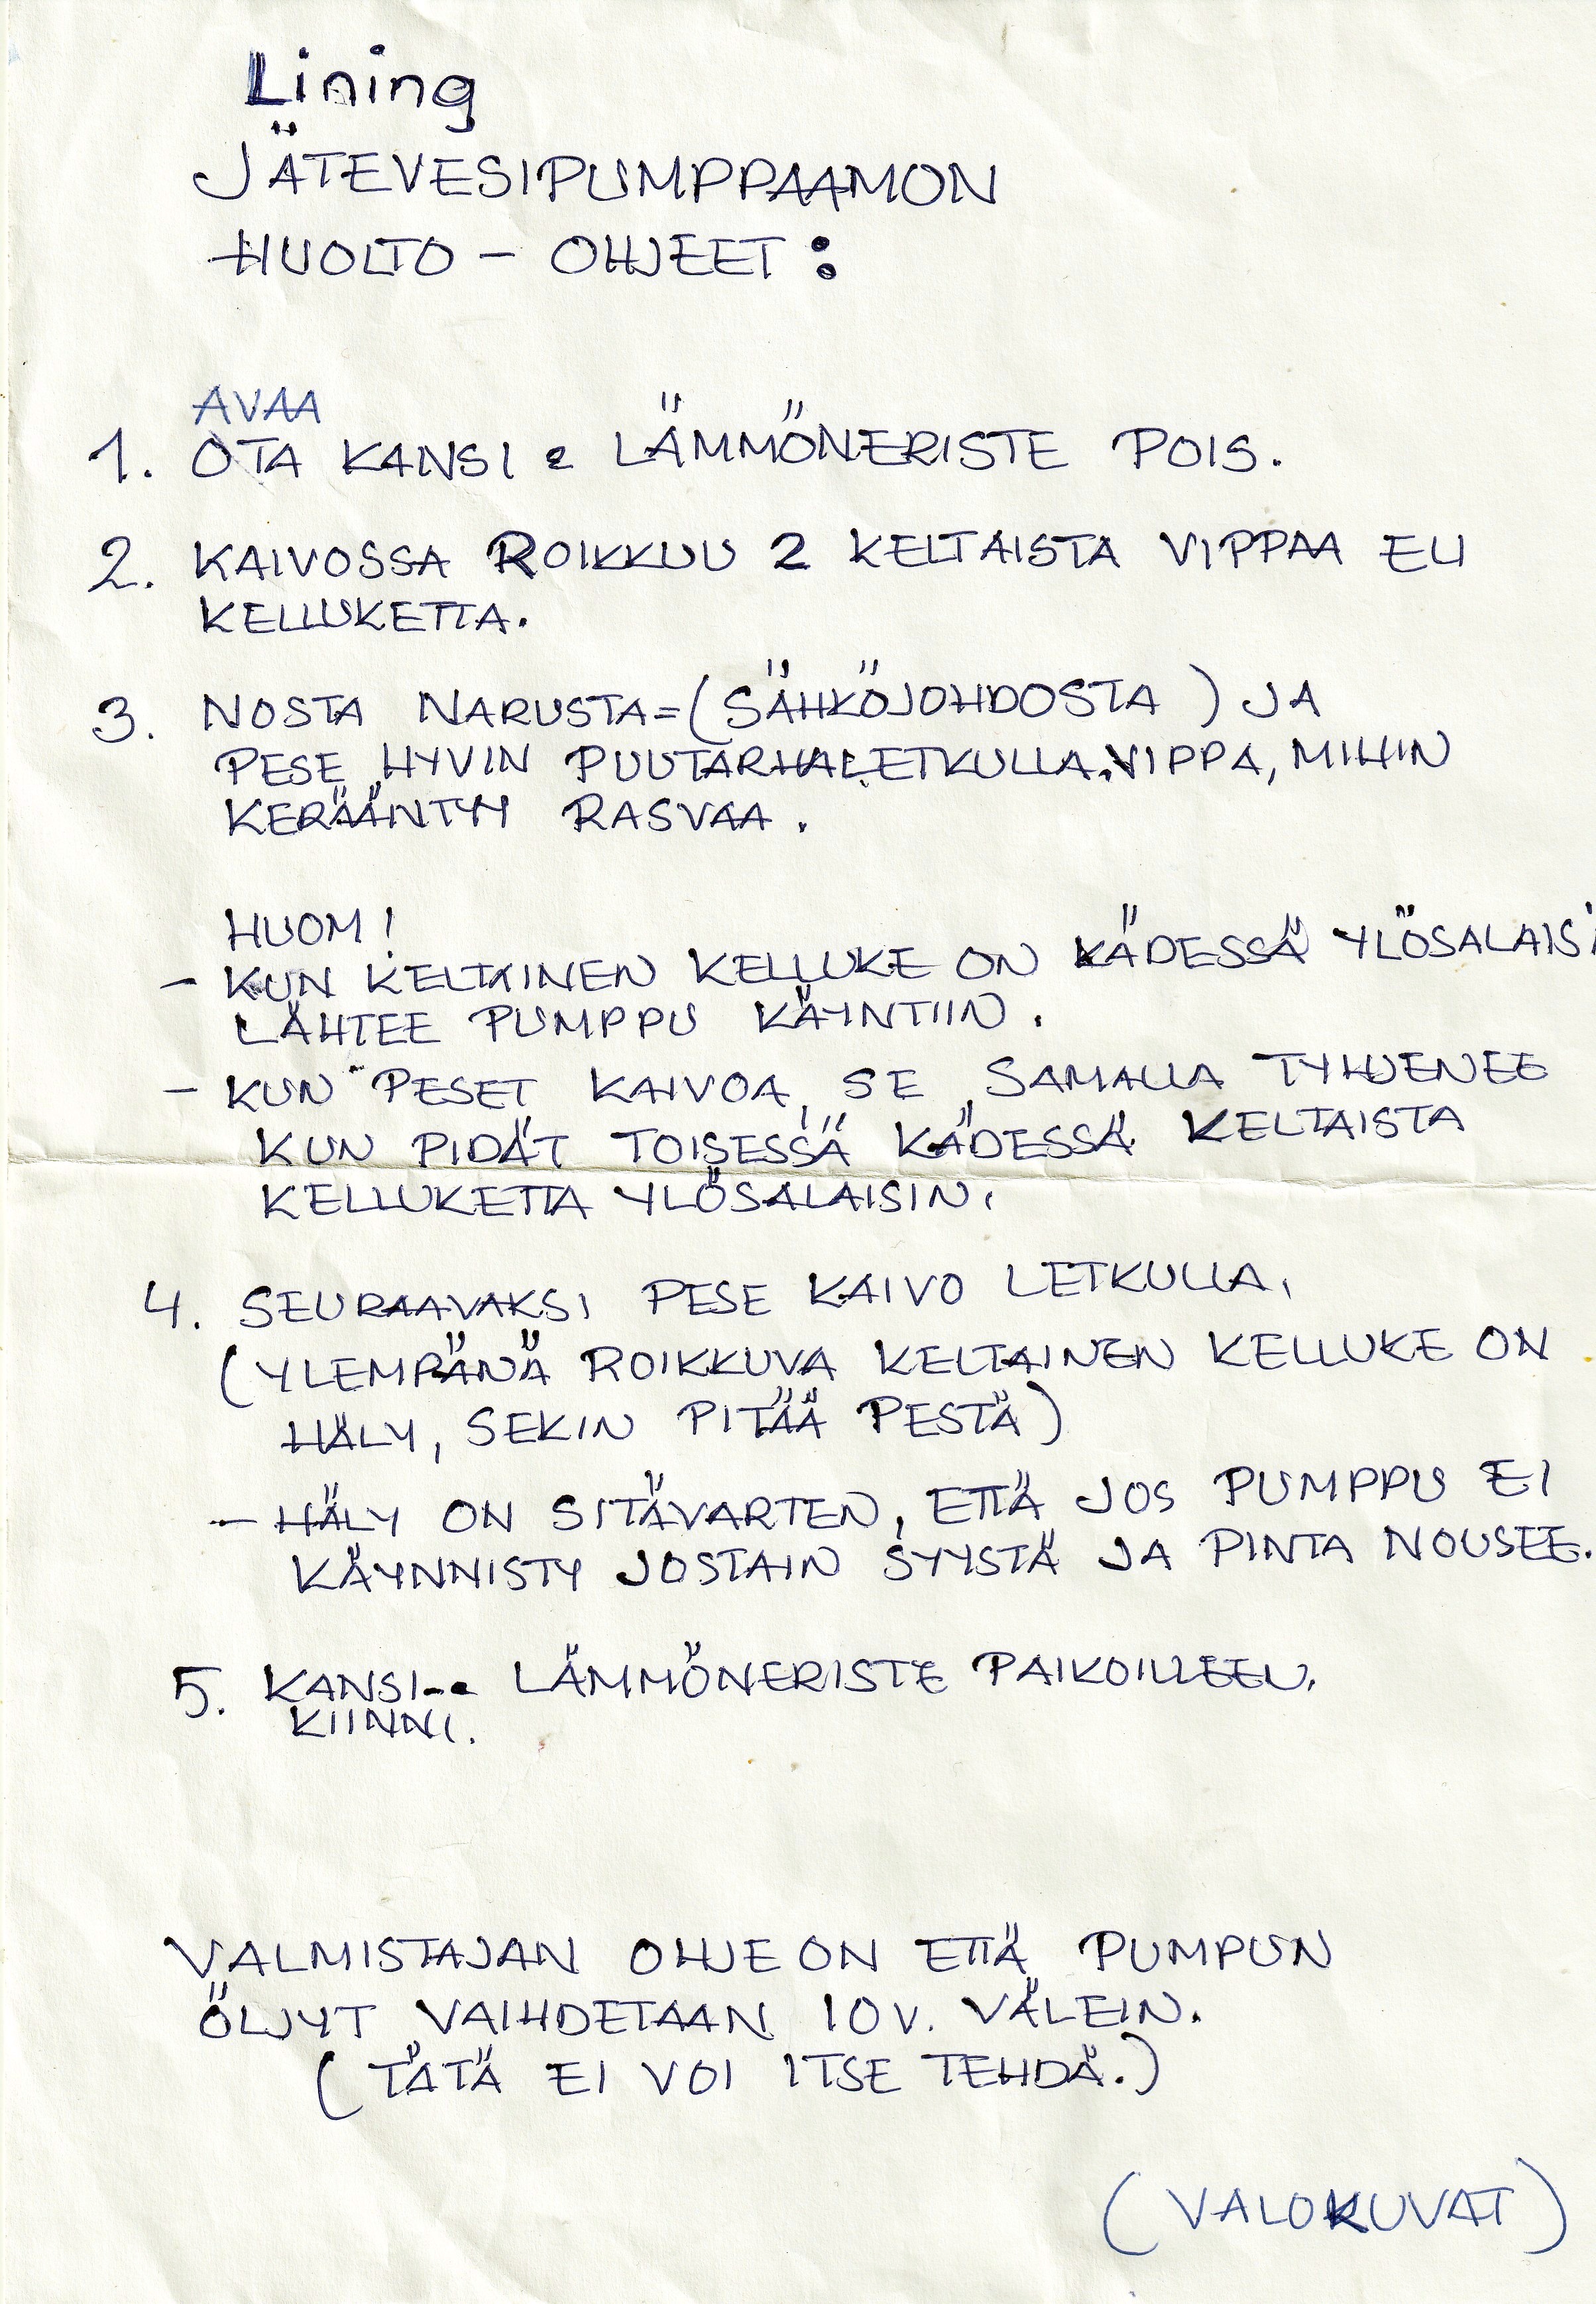 Lining
JÄTEVESIPUMPPAAMON
HUOLTO - OHJEET :
AVAA
1. OTA KANSI & LÄMMÖNERISTE POIS.
2. KAIVOSSA ROIKKUU 2 KELTAISTA VIPPAA ELI
KELLUKETTA.
3. NOSTA NARUSTA=(SÄHKÖJOHDOSTA) JA
PESE HYVIN PUUTARHALETKULLA.VIPPA, MIHIN
KERÄÄNTYY RASVAA.
HUOM!
- KUN KELTAINEN KELLUKE ON KÄDESSÄ YLÖSALAISI
LÄHTEE PUMPPU KÄYNTIIN.
- KUN PESET KAIVOA, SE SAMALLA TYHJENEE
KUN PIDÄT TOISESSÄ KÄDESSÄ KELTAISTA
KELLUKETTA YLÖSALAISIN.
4. SEURAAVAKSI PESE KAIVO LETKULLA.
(YLEMPÄNÄ ROIKKUVA KELTAINEN KELLUKE ON
HÄLY, SEKIN PITÄÄ PESTÄ)
- HÄLY ON SITÄVARTEN, ETTÄ JOS PUMPPU EI
KÄYNNISTY JOSTAIN SYYSTÄ JA PINTA NOUSEE.
5. KANSI & LÄMMÖNERISTE PAIKOILLEEN.
KIINNI.
VALMISTAJAN OHJE ON ETTÄ PUMPUN
ÖLJYT VAIHDETAAN 10 V. VÄLEIN.
(TÄTÄ EI VOI ITSE TEHDÄ.)
(VALOKUVAT)